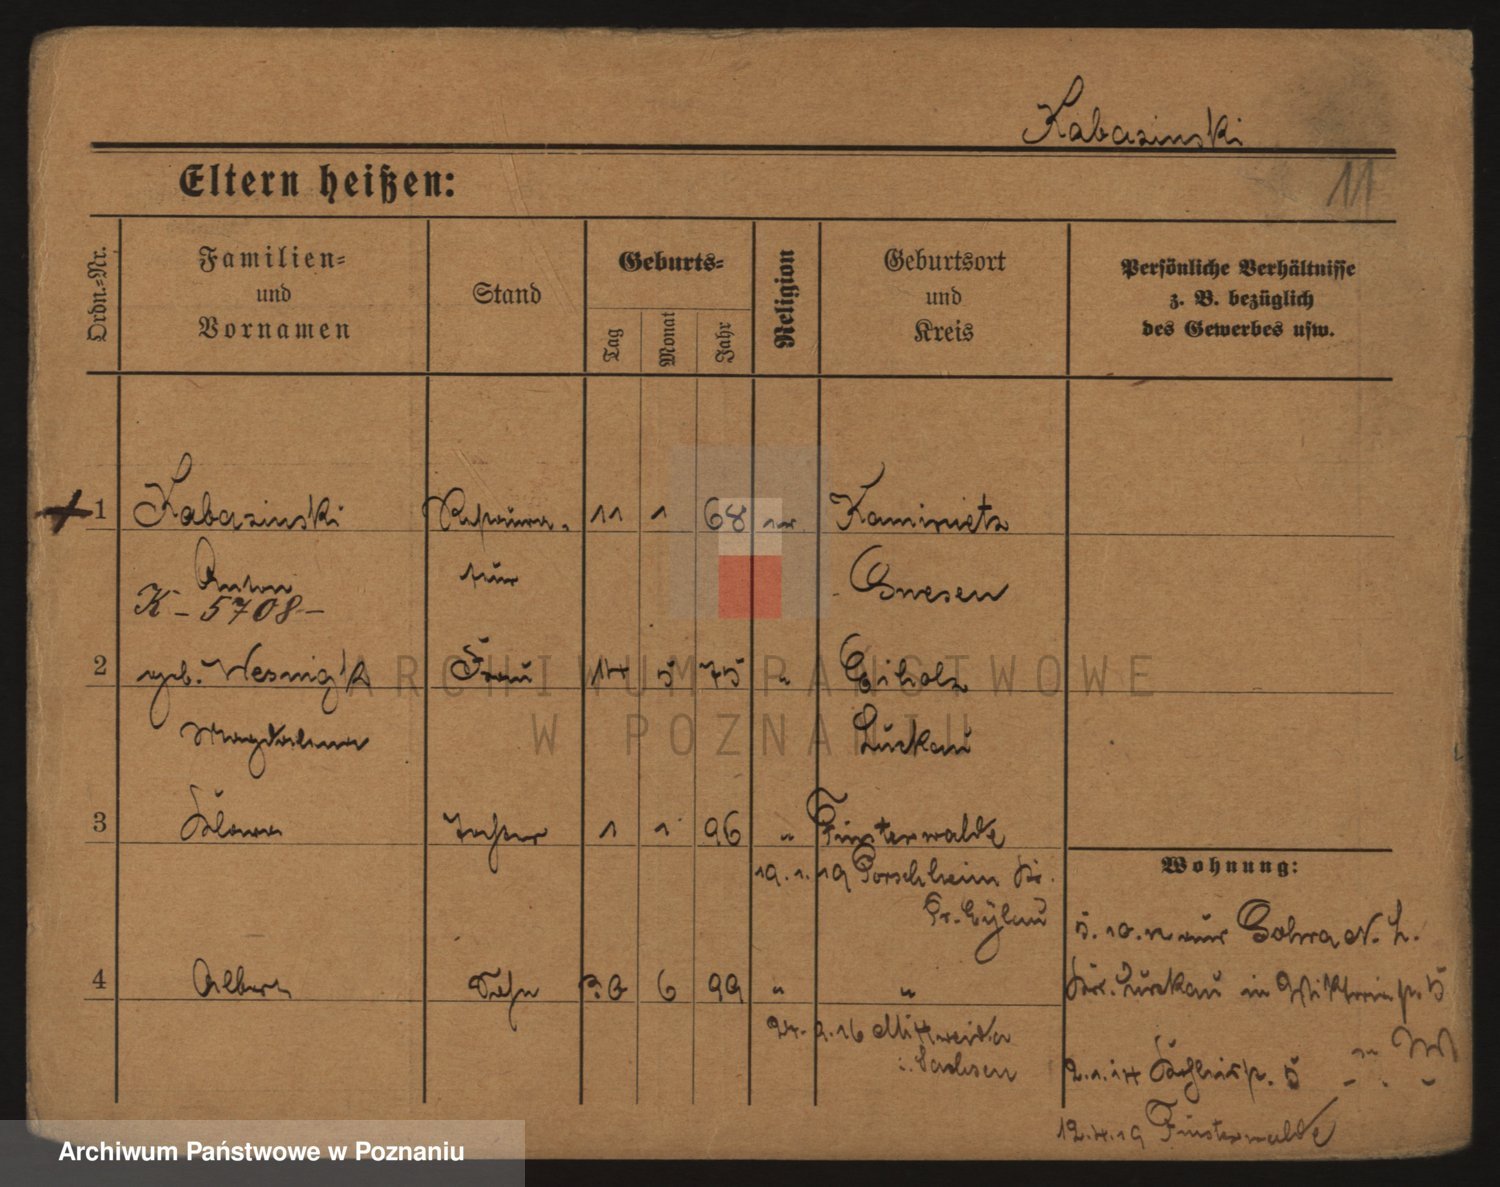 Kabasinski
Eltern heißen:
11
Ordn.-Nr.
Familien-
und
Vornamen
Stand
Geburts-
Tag
Monat
Jahr
Religion
Geburtsort
und
Kreis
Persönliche Verhältnisse
z. B. bezüglich
des Gewerbes usw.
1 Kabasinski 11 1 68 Kaminietz
Anton Gnesen
K - 5708 -
2 geb. Frau 14 5 75 " Eiholz
Magdalena Luckau
3 Tochter 1 1 96 " Finsterwalde
19. 1. 19 Porschheim Kr.
Pr. Eylau
4 Albert Sohn 30 6 99 " "
24. 9. 16 Mittweida
i. Sachsen
Wohnung:
5. 10. aus Gohra N. L.
Kr. Luckau in
2. 1. 14
12. 4. 19 Finsterwalde
ARCHIWUM PAŃSTWOWE
W POZNANIU
Archiwum Państwowe w Poznaniu